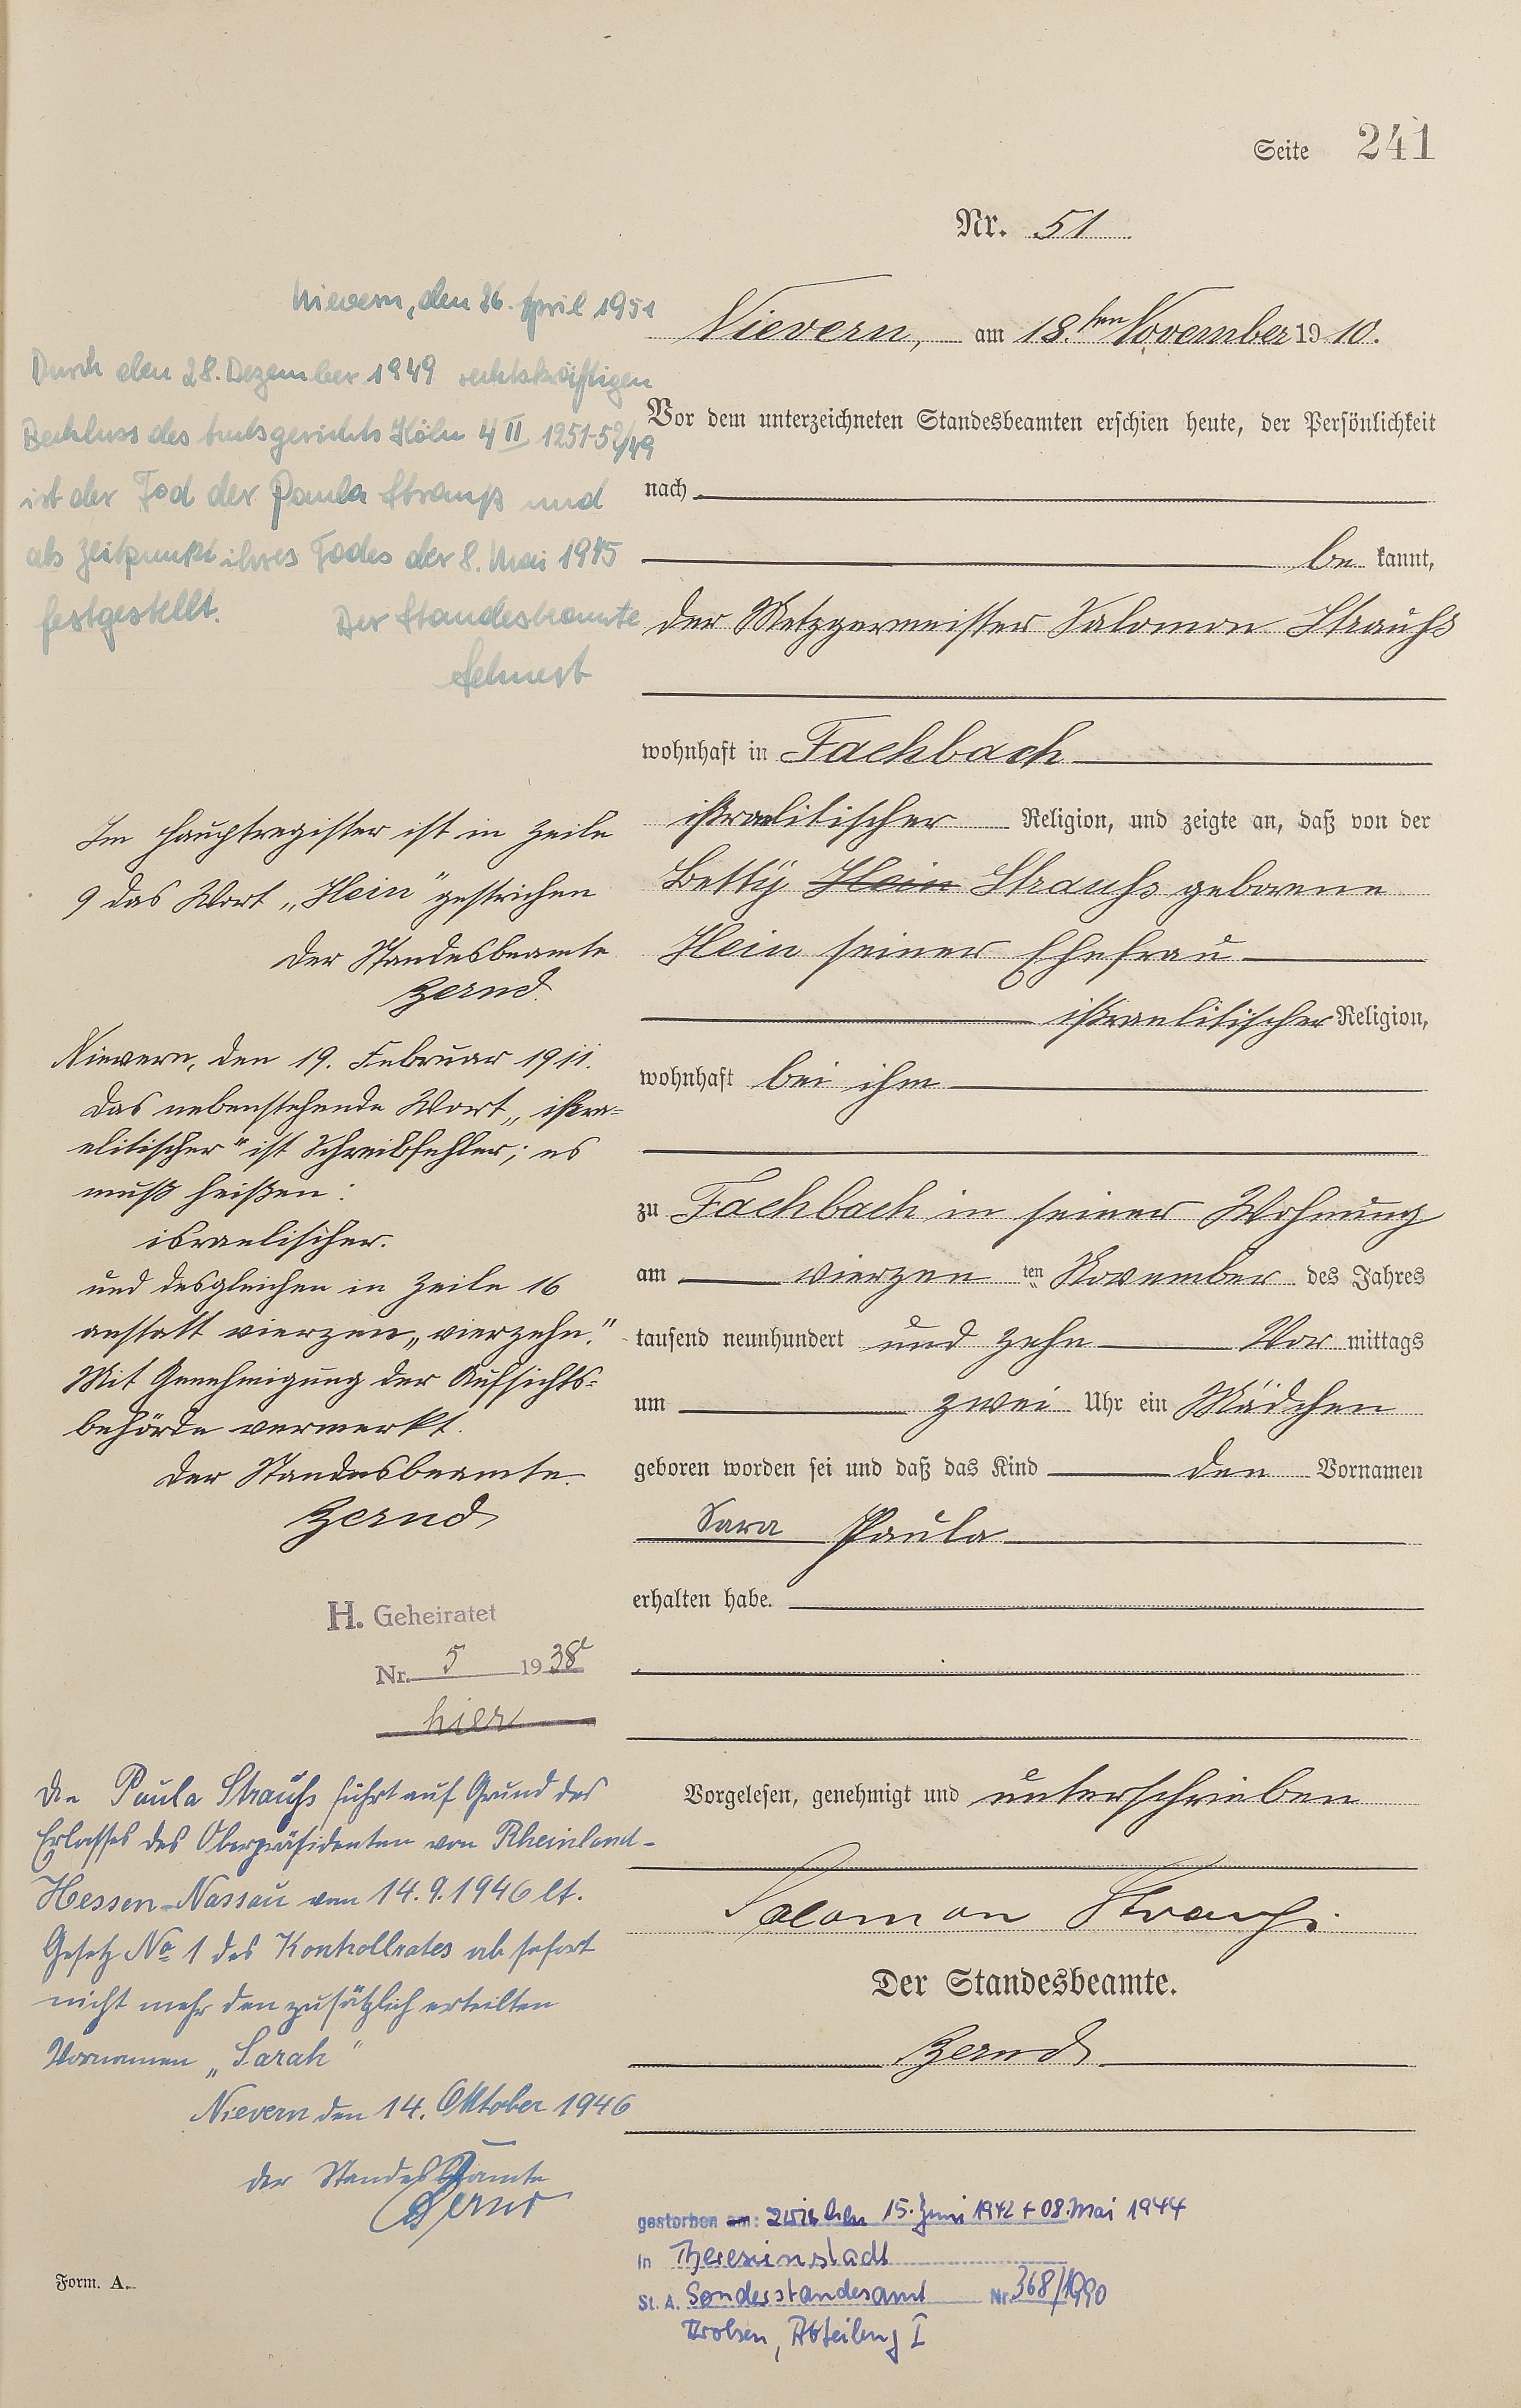 Seite 241
Nr. 51
Nievern, am 18.ten November 1910.
Vor dem unterzeichneten Standesbeamten erschien heute, der Persönlichkeit
nach
be kannt,
der Metzgermeister Salomon Strauhs
wohnhaft in Fachbach
ißraelitischer Religion, und zeigte an, daß von der
Betty Hein Strauhs geborene
Hein seiner Ehefrau
ißraelitischer Religion,
wohnhaft bei ihm
zu Fachbach in seiner Wohnung
am vierzen ten November des Jahres
tausend neunhundert und zehn Vor mittags
um zwei Uhr ein Mädchen
geboren worden sei und daß das Kind den Vornamen
Sara Paula
erhalten habe.
Vorgelesen, genehmigt und unterschrieben
Salomon Strauhs.
Der Standesbeamte.
Zernd
gestorben am: zwischen 15. Juni 1942 + 08. Mai 1944
in Theresienstadt
St. A. Sonderstandesamt Nr. 368/1990
Arolsen, Abteilung I
Nievern, den 26. April 1951
Durch den 28. Dezember 1949 rechtskräftigen
Beschluss des Amtsgerichts Köln 4 II 1251-52/49
ist der Tod der Paula Strauß und
als Zeitpunkt ihres Todes der 8. Mai 1945
festgestellt. Der Standesbeamte
Im Hauptregister ist in Zeile
9 das Wort „Hein" gestrichen
Der Standesbeamte
Zernd.
Nievern, den 19. Februar 1911.
Das nebenstehende Wort „ißra=
elitischer" ist Schreibfehler; es
muß heißen:
israelischer.
und desgleichen in Zeile 16
anstatt vierzen „vierzehn."
Mit Genehmigung der Aufsichts=
behörde vermerkt.
Der Standesbeamte
Zernd
H. Geheiratet
Nr. 5 1938
hier
Die Paula Strauhs führt auf Grund des
Erlasses des Oberpräsidenten von Rheinland-
Hessen-Nassau vom 14.9.1946 lt.
Gesetz No 1 des Kontrollrates ab sofort
nicht mehr den zusätzlich erteilten
Vornamen „Sarah"
Nievern den 14. Oktober 1946
der Standesbeamte
Form. A.